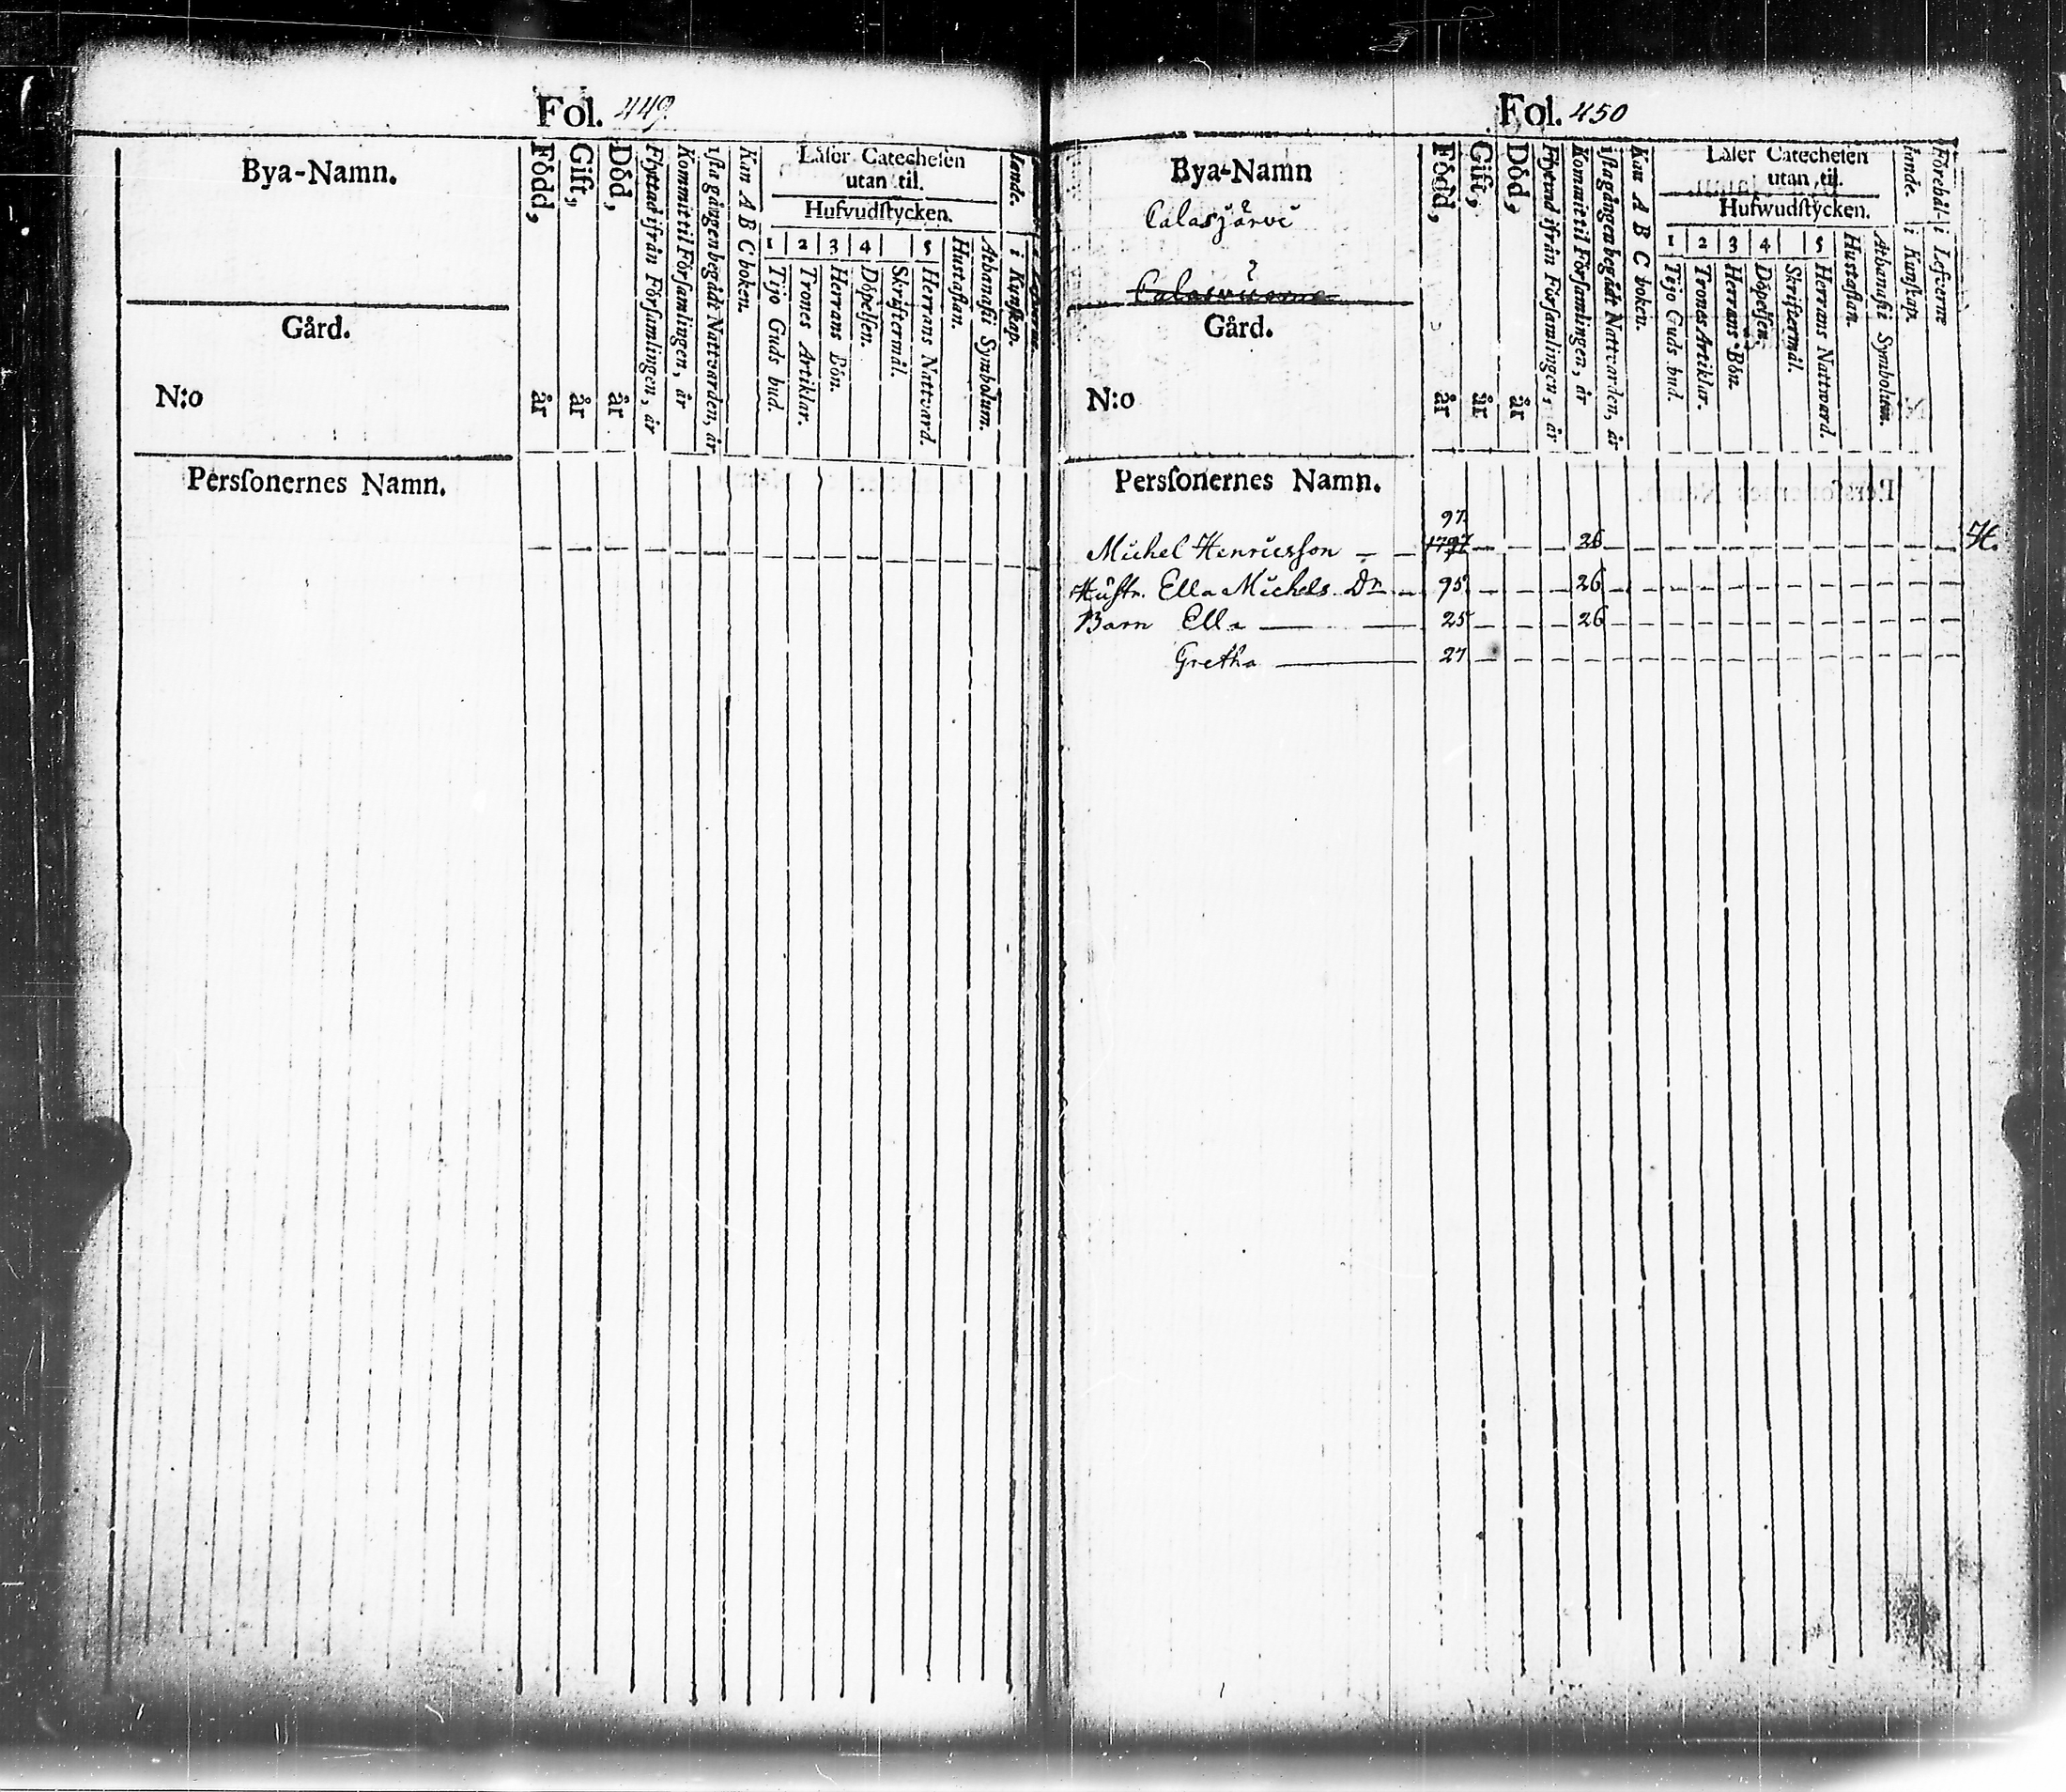 Fol. 449
Bya-Namn.
Gård.
N:o
Persſonernes Namn.
Född, år
Gift, år
Död, år
Flyttad ifrån Förſamlingen, år
Kommit til Förſamlingen, år
1ſta gången begådt Nattvarden, år
Kan A B C boken.
Läſer Catecheſen
utan til.
Hufvudſtycken.
1 2 3 4 5
Tijo Guds bud.
Trones Artiklar.
Herrans Bön.
Döpelſen.
Skriftermål.
Herrans Nattvard.
Huſtaflan.
Athanaſii Symbolum.
i Kunſkap.
Fol. 450
Bya-Namn
Calasjärvi
Gård.
N:o
Persſonernes Namn.
Född, år
Gift, år
Död, år
Flyttad ifrån Förſamlingen, år
Kommit til Förſamlingen, år
1ſta gången begådt Nattvarden, år
Kan A B C boken.
Läſer Catecheſen
utan til.
Hufwudſtycken.
1 2 3 4 5
Tijo Guds bud.
Trones Artiklar.
Herrans Bön.
Döpelſen.
Skriftermål.
Herrans Nattvard.
Huſtaflan.
Athanaſii Symbolum.
Förehål-
lande.
i Kunſkap.
i Lefverne
97
Michel Henricsſon 1797 26
Hustr. Ella Michels Dr 95 26
Barn Ella 25 26
Gretha 27